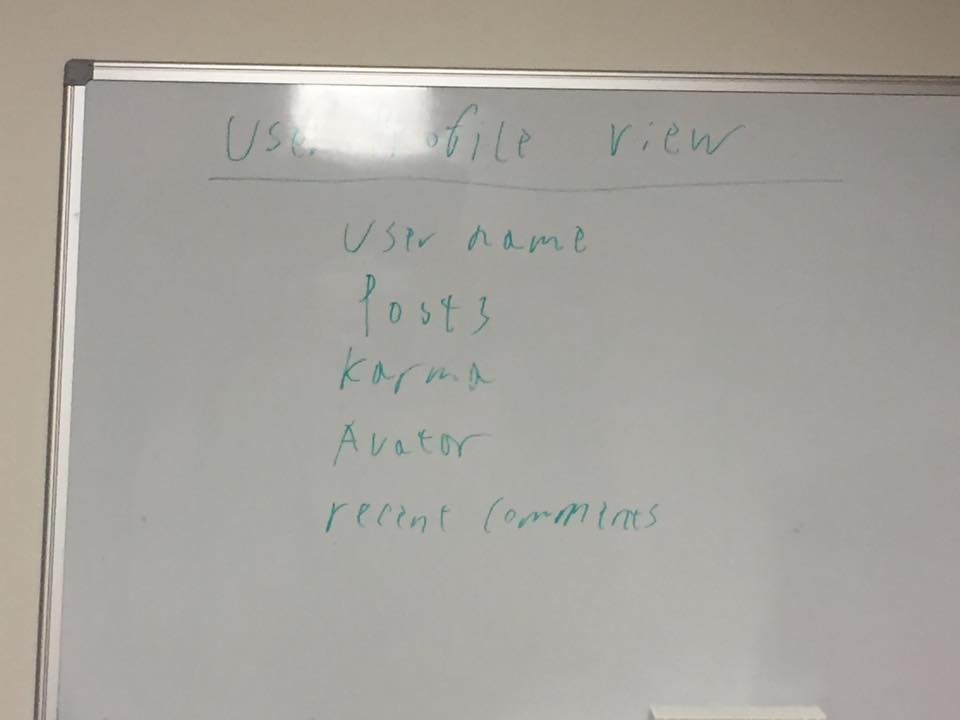 User Profile view
User name
Posts
Karma
Avator
recent comments